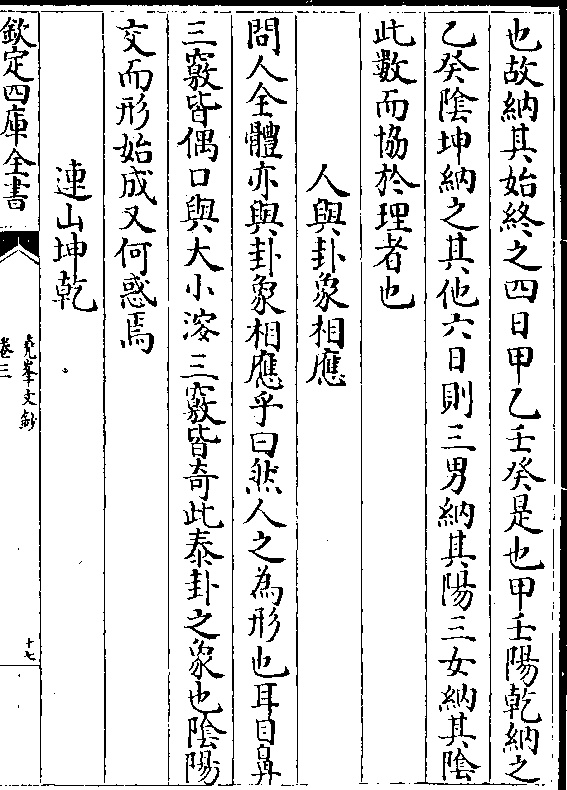 也故納其始終之四日甲乙壬癸是也甲壬陽乾納之
乙癸陰坤納之其他六日則三男納其陽三女納其陰
此數而協於理者也
人與卦象相應
問人全體亦與卦象相應乎曰然人之為形也耳目鼻
三竅皆偶口與大小溲三竅皆奇此泰卦之象也陰陽
交而形始成又何惑焉
連山坤乾
欽定四庫全書
堯峯文鈔
卷三
十七